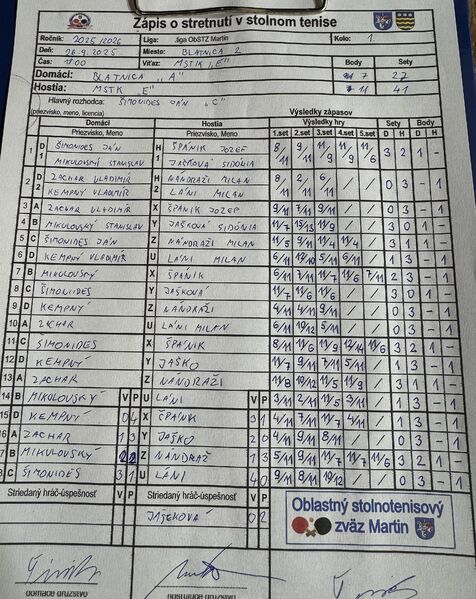 Zápis o stretnutí v stolnom tenise
Ročník: 2025/2026 Liga: .liga ObSTZ Martin Kolo: 1.
Deň: 26.9.2025 Miesto: BLATNICA 2
Čas: 18:00 Víťaz: MSTK "E" Body Sety
Domáci: BLATNICA "A" 7 27
Hostia: MSTK "E" 11 41
Hlavný rozhodca: ŠIMONIDES JÁN "C"
(priezvisko, meno, licencia) Výsledky zápasov
Domáci Hostia Výsledky hry Sety Body
Priezvisko, Meno Priezvisko, Meno 1.set 2.set 3.set 4.set 5.set D H D H
1 D1 ŠIMONIDES JÁN H1 ŠPÁNIK JOZEF 3 2 1 -
MIKULOVSKÝ STANISLAV JAŠKOVÁ SIDÓNIA
2 D2 ZACHAR VLADIMÍR H2 NANDRAŽI MILAN 8/11 2/11 6/11 / / 0 3 - 1
KEMPNÝ VLADIMÍR LÁNI MILAN
3 A ZACHAR VLADIMÍR X ŠPÁNIK JOZEF 9/11 7/11 9/11 / / 0 3 - 1
4 B MIKULOVSKÝ STANISLAV Y JAŠKOVÁ SIDÓNIA 11/7 15/13 11/9 / / 3 0 1 -
5 C ŠIMONIDES JÁN Z NANDRAŽI MILAN 11/5 9/11 11/4 11/4 / 3 1 1 -
6 D KEMPNÝ VLADIMÍR U LÁNI MILAN 6/11 12/10 5/11 6/11 / 1 3 - 1
7 B MIKULOVSKÝ X ŠPÁNIK 6/11 11/7 11/7 11/6 7/11 2 3 - 1
8 C ŠIMONIDES Y JAŠKOVÁ 11/7 11/6 11/6 / / 3 0 1 -
9 D KEMPNÝ Z NANDRAŽI 4/11 4/11 9/11 / / 0 3 - 1
10 A ZACHAR U LÁNI MILAN 6/11 10/12 5/11 / / 0 3 - 1
11 C ŠIMONIDES X ŠPÁNIK 3 2 1 -
12 D KEMPNÝ Y JAŠKO 11/7 9/11 7/11 5/11 / 1 3 - 1
13 A ZACHAR Z NANDRAŽI 11/8 10/12 11/5 11/9 / 3 1 1 -
14 B MIKULOVSKÝ V P U LÁNI V P 3/11 2/11 11/5 / 1 3 - 1
15 D KEMPNÝ 0 4 X ŠPÁNIK 3 1 4/11 7/11 11/7 4/11 / 1 3 - 1
16 A ZACHAR 1 3 Y JAŠKO 2 0 4/11 9/11 8/11 / / 0 3 - 1
B MIKULOVSKÝ 2 2 Z NANDRAŽ 1 3 5/11 9/11 11/7 11/7 11/6 3 2 1 -
C ŠIMONIDES 3 1 U LÁNI 4 0 9/11 8/11 10/12 / / 0 3 - 1
Striedaný hráč-úspešnosť V P Striedaný hráč-úspešnosť V P
JAŠEKOVÁ 0 2
Oblastný stolnotenisový
zväz Martin
domáce družstvo